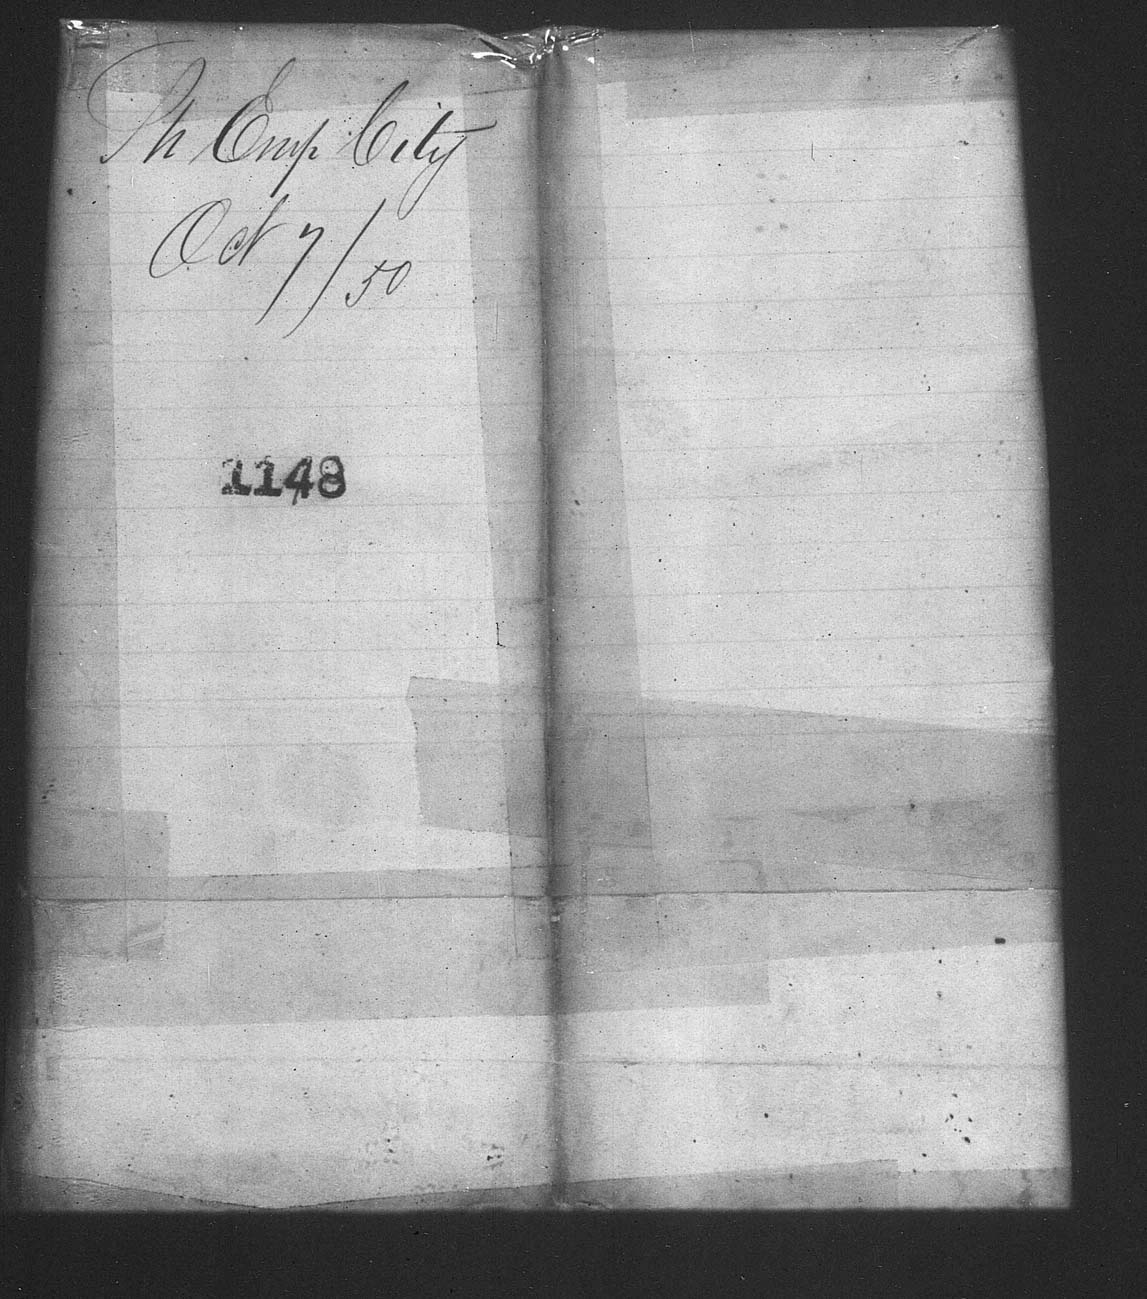 Sh Emp City
Oct 7/50
1148